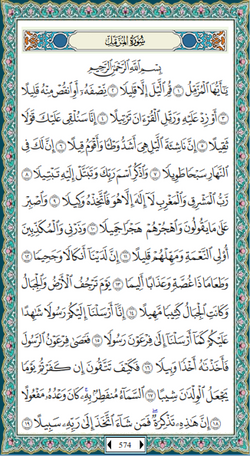 سُورَةُ المُزَّمِّلِ
بِسْمِ اللَّهِ الرَّحْمَٰنِ الرَّحِيمِ
يَٰٓأَيُّهَا ٱلْمُزَّمِّلُ ١ قُمِ ٱلَّيْلَ إِلَّا قَلِيلًا ٢ نِّصْفَهُۥٓ أَوِ ٱنقُصْ مِنْهُ قَلِيلًا
٣ أَوْ زِدْ عَلَيْهِ وَرَتِّلِ ٱلْقُرْءَانَ تَرْتِيلًا ٤ إِنَّا سَنُلْقِى عَلَيْكَ قَوْلًا
ثَقِيلًا ٥ إِنَّ نَاشِئَةَ ٱلَّيْلِ هِىَ أَشَدُّ وَطْـًٔا وَأَقْوَمُ قِيلًا ٦ إِنَّ لَكَ فِى
ٱلنَّهَارِ سَبْحًا طَوِيلًا ٧ وَٱذْكُرِ ٱسْمَ رَبِّكَ وَتَبَتَّلْ إِلَيْهِ تَبْتِيلًا ٨
رَّبُّ ٱلْمَشْرِقِ وَٱلْمَغْرِبِ لَآ إِلَٰهَ إِلَّا هُوَ فَٱتَّخِذْهُ وَكِيلًا ٩ وَٱصْبِرْ
عَلَىٰ مَا يَقُولُونَ وَٱهْجُرْهُمْ هَجْرًا جَمِيلًا ١٠ وَذَرْنِى وَٱلْمُكَذِّبِينَ
أُو۟لِى ٱلنَّعْمَةِ وَمَهِّلْهُمْ قَلِيلًا ١١ إِنَّ لَدَيْنَآ أَنكَالًا وَجَحِيمًا ١٢
وَطَعَامًا ذَا غُصَّةٍ وَعَذَابًا أَلِيمًا ١٣ يَوْمَ تَرْجُفُ ٱلْأَرْضُ وَٱلْجِبَالُ
وَكَانَتِ ٱلْجِبَالُ كَثِيبًا مَّهِيلًا ١٤ إِنَّآ أَرْسَلْنَآ إِلَيْكُمْ رَسُولًا شَٰهِدًا
عَلَيْكُمْ كَمَآ أَرْسَلْنَآ إِلَىٰ فِرْعَوْنَ رَسُولًا ١٥ فَعَصَىٰ فِرْعَوْنُ ٱلرَّسُولَ
فَأَخَذْنَٰهُ أَخْذًا وَبِيلًا ١٦ فَكَيْفَ تَتَّقُونَ إِن كَفَرْتُمْ يَوْمًا
يَجْعَلُ ٱلْوِلْدَٰنَ شِيبًا ١٧ ٱلسَّمَآءُ مُنفَطِرٌۢ بِهِۦ كَانَ وَعْدُهُۥ مَفْعُولًا
١٨ إِنَّ هَٰذِهِۦ تَذْكِرَةٌ فَمَن شَآءَ ٱتَّخَذَ إِلَىٰ رَبِّهِۦ سَبِيلًا ١٩
574